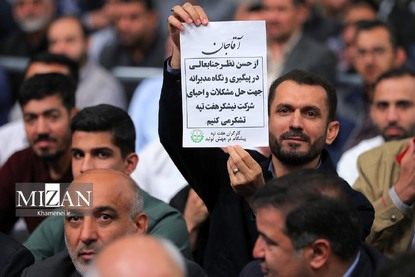 آقاجان
از حسن نظر جنابعالی
در پیگیری و نگاه مدبرانه
جهت حل مشکلات و احیای
شرکت نیشکر هفت تپه
تشکر می کنیم
کارگران هفت تپه
پیشگام در جهش تولید
MIZAN
Khamenei.ir